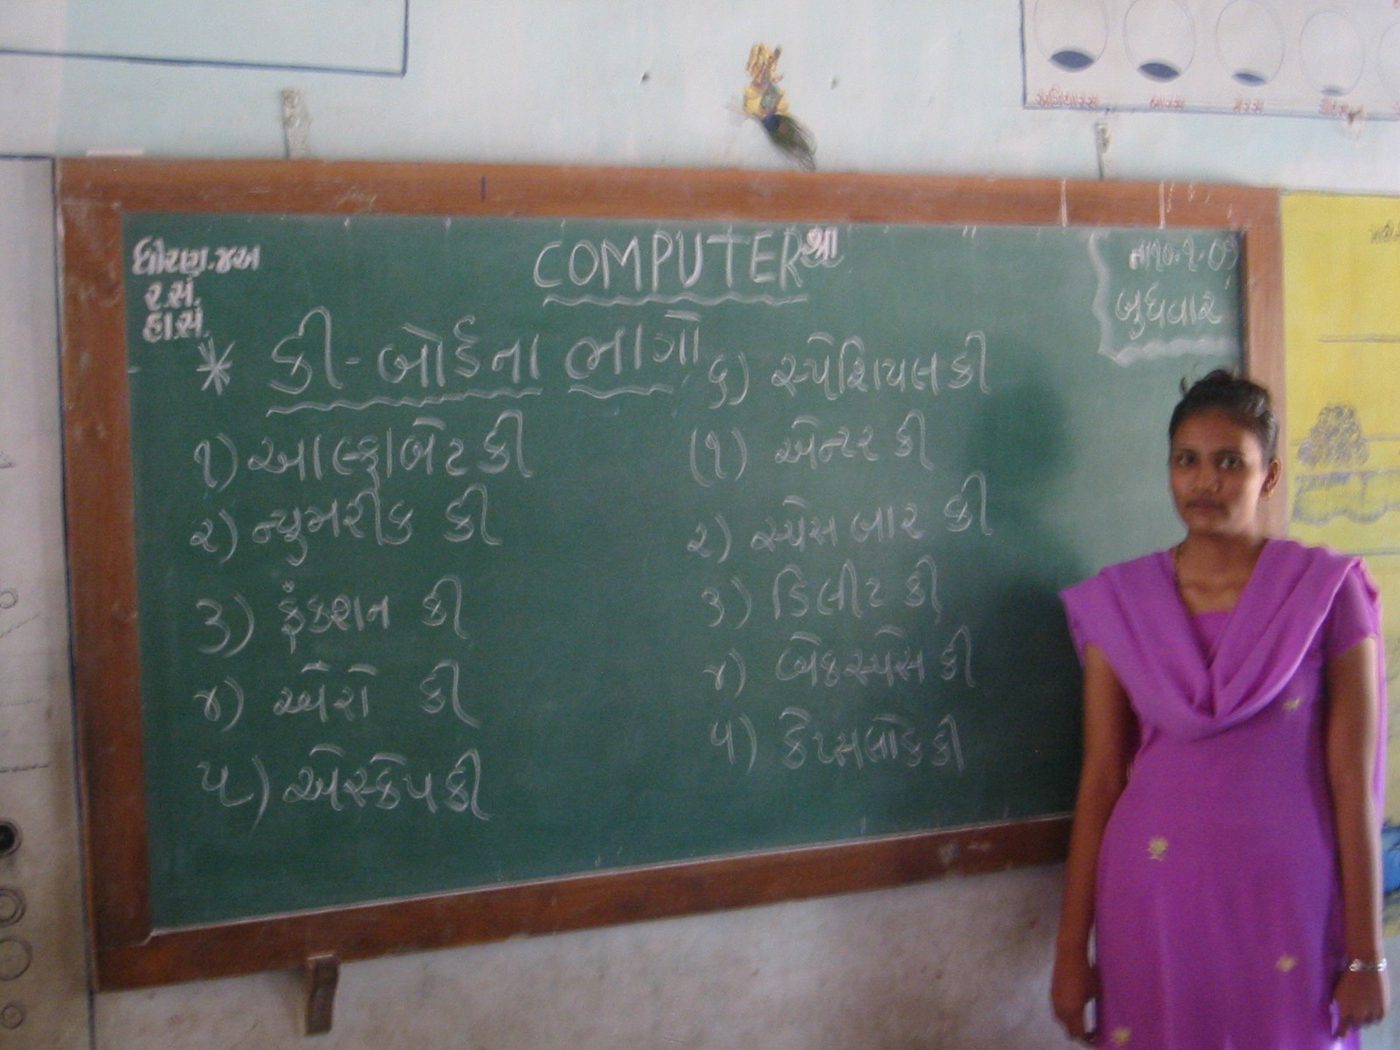 ધોરણ.૪અ
ર.સં.
હા.સં.
COMPUTER
શ્રી
બુધવાર
* કી-બોર્ડના ભાગો
૧) આલ્ફાબેટ કી
૨) ન્યુમરીક કી
૩) ફંકશન કી
૪) એરો કી
૫) એસ્કેપ કી
૬) સ્પેશિયલ કી
(૧) એન્ટર કી
૨) સ્પેસ બાર કી
૩) ડિલીટ કી
૪) બેકસ્પેસ કી
૫) કેપ્સલોક કી